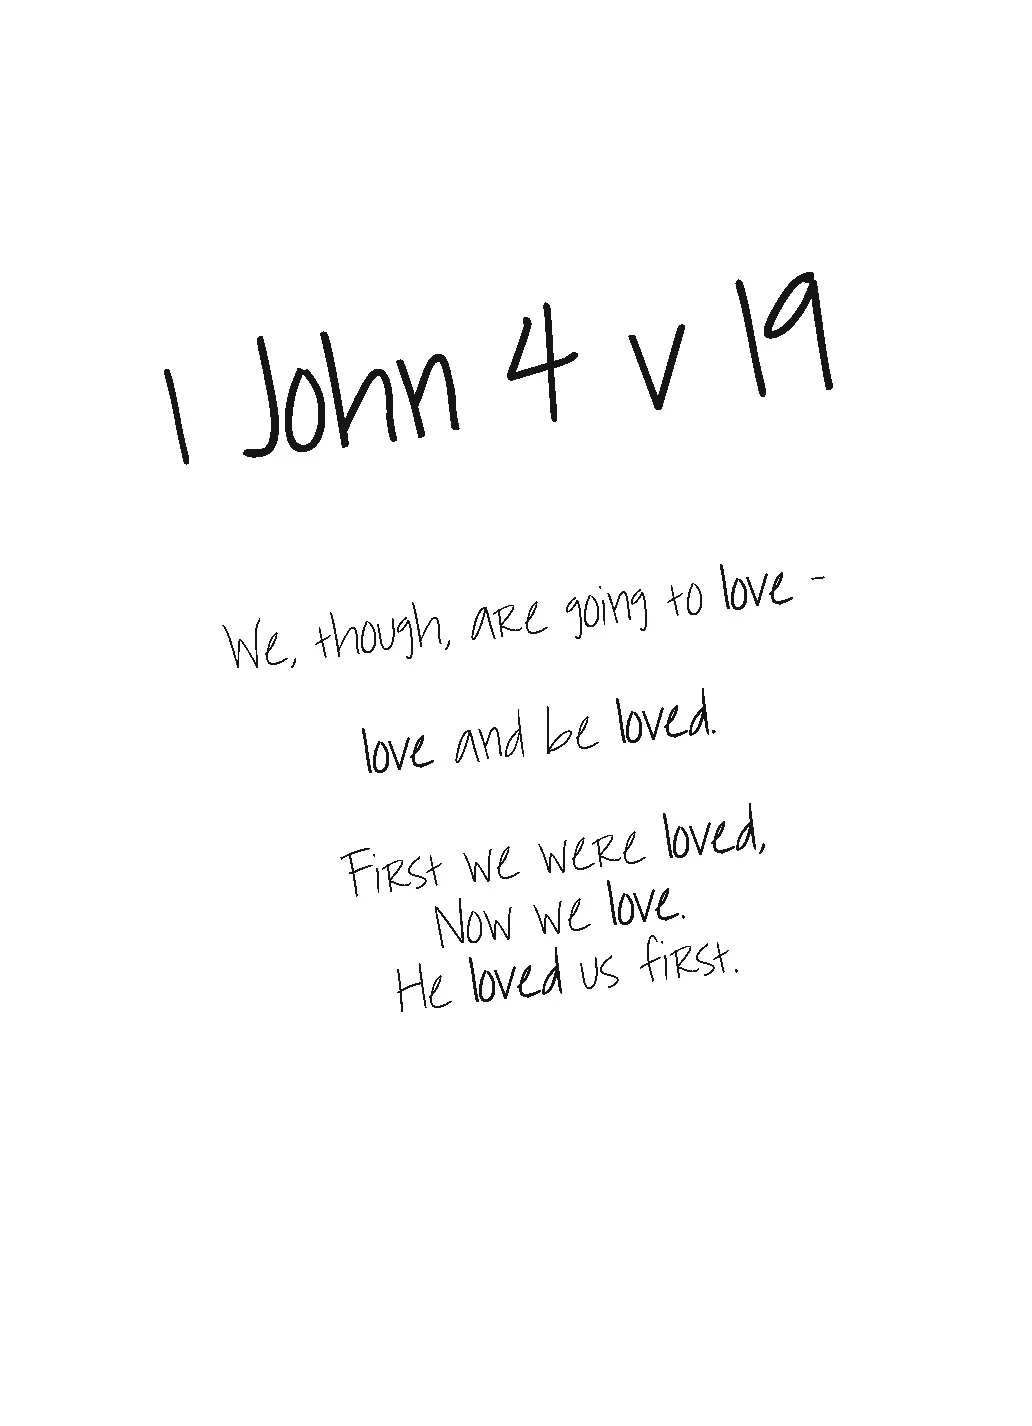 1 John 4 v 19
We, though, are going to love -
love and be loved.
First we were loved,
Now we love.
He loved us first.